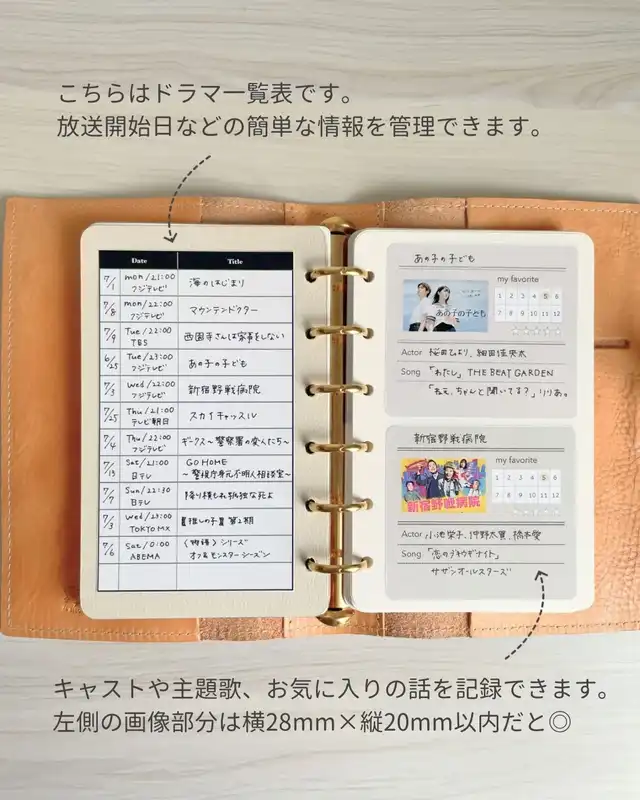 こちらはドラマ一覧表です。
放送開始日などの簡単な情報を管理できます。
Date Title
7/1 mon/21:00 フジテレビ 海のはじまり
7/8 mon/22:00 フジテレビ マウンテンドクター
7/9 Tue/22:00 TBS 西園寺さんは家事をしない
6/25 Tue/23:00 フジテレビ あの子の子ども
7/3 Wed/22:00 フジテレビ 新宿野戦病院
7/25 Thu/21:00 テレビ朝日 スカイキャッスル
7/4 Thu/22:00 フジテレビ ギークス〜警察署の変人たち〜
7/13 Sat/21:00 日テレ GO HOME
〜警視庁身元不明人相談室〜
7/7 Sun/22:30 日テレ 降り積もれ孤独な死よ
7/3 Wed/23:00 TOKYO MX 【推しの子】第2期
7/6 Sat/0:00 ABEMA 〈物語〉シリーズ
オフ&モンスターシーズン
あの子の子ども
my favorite
1 2 3 4 5 6
7 8 9 10 11 12
あの子の子ども
Actor 桜田ひより、細田佳央太
Song 「わたし」THE BEAT GARDEN
「ねえ、ちゃんと聞いてる?」りりあ。
新宿野戦病院
my favorite
1 2 3 4 5 6
7 8 9 10 11 12
新宿野戦病院
Actor 小池栄子、仲野太賀、橋本愛
Song 「恋のブギウギナイト」
サザンオールスターズ
キャストや主題歌、お気に入りの話を記録できます。
左側の画像部分は横28mm×縦20mm以内だと◎